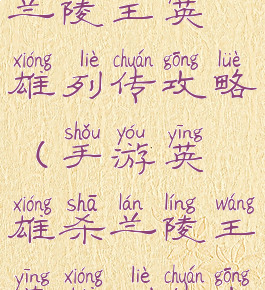 兰陵王英
xióng liè chuán gōng lüè
雄列传攻略
shǒu yóu yīng
(手游英
xióng shā lán líng wáng
雄杀兰陵王
yīng xióng liè chuán gōng